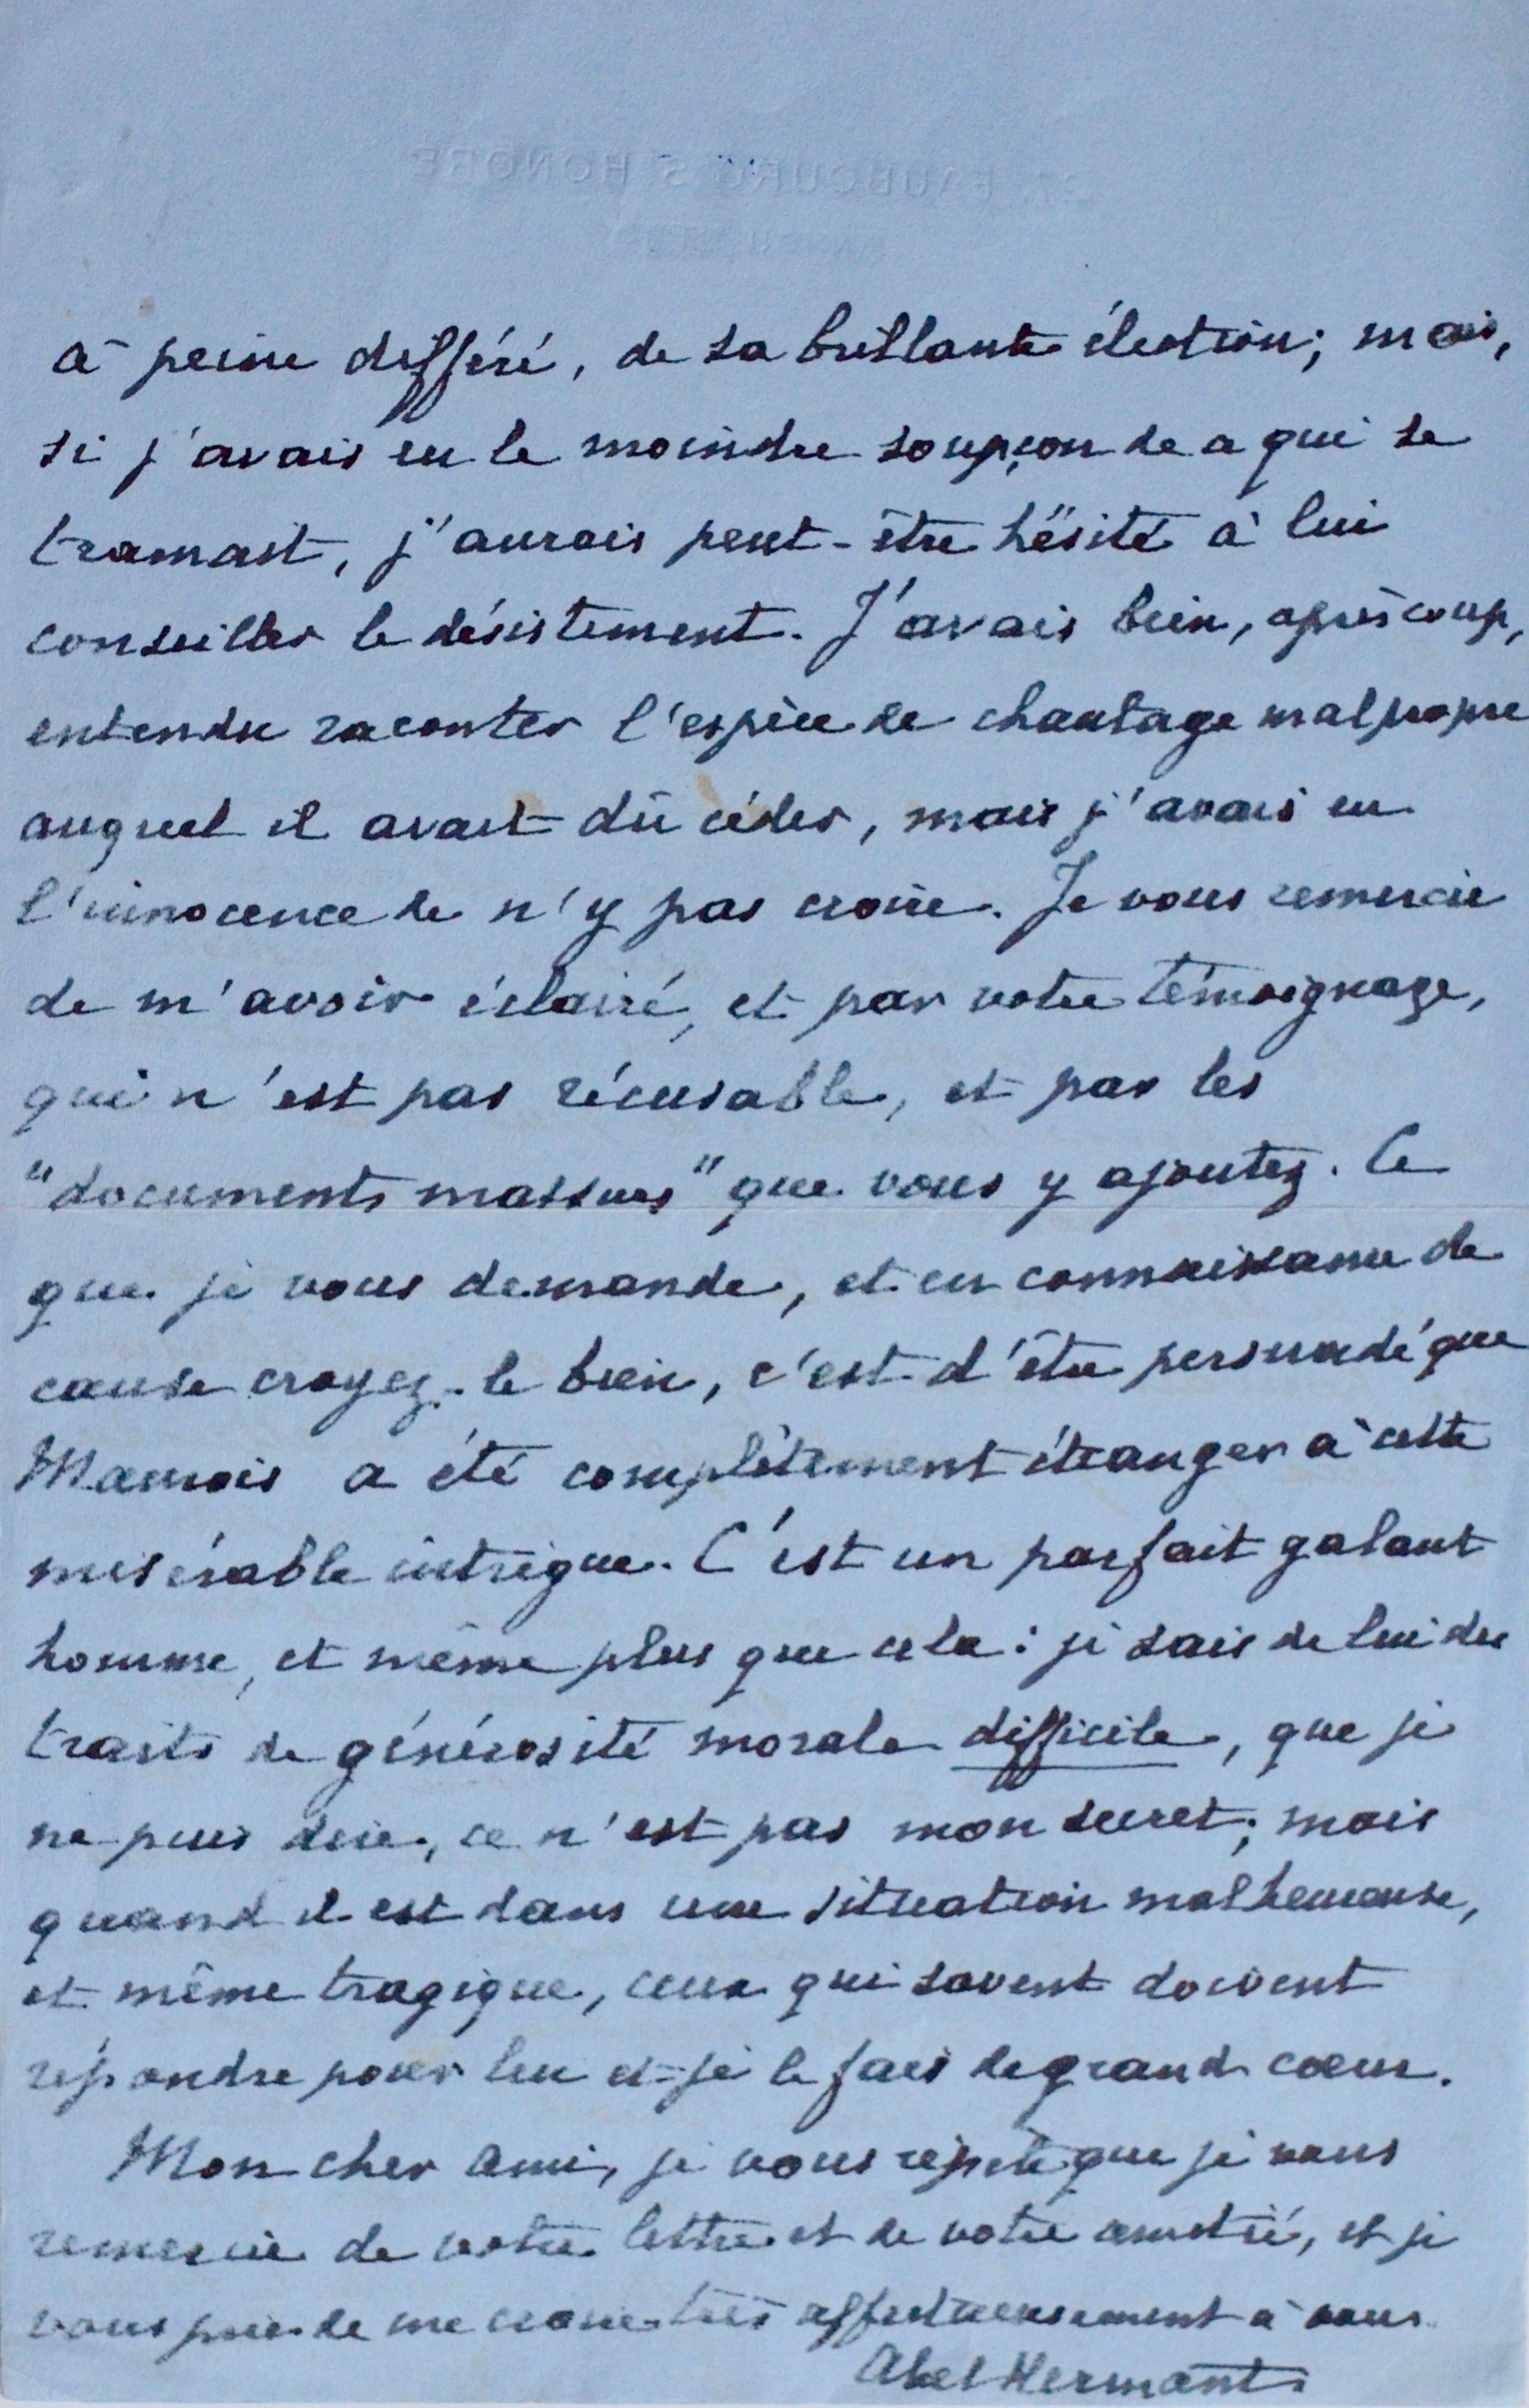 à peine différé, de sa brillante élection; mais,
si j'avais eu le moindre soupçon de ce qui se
tramait, j'aurais peut-être hésité à lui
conseiller le désistement. J'avais bien, après coup,
entendu raconter l'espèce de chantage malpropre
auquel il avait dû céder, mais j'avais eu
l'innocence de n'y pas croire. Je vous remercie
de m'avoir éclairé, et par votre témoignage,
qui n'est pas récusable, et par les
"documents massues" que vous y ajoutez. Ce
que je vous demande, et en connaissance de
cause croyez-le bien, c'est d'être persuadé que
a été complètement étranger à cette
misérable intrigue. C'est un parfait galant
homme, et même plus que cela: je sais de lui des
traits de générosité morale difficile, que je
ne puis dire, ce n'est pas mon secret; mais
quand il est dans une situation malheureuse,
et même tragique, ceux qui savent doivent
répondre pour lui et je le fais de grand coeur.
Mon cher ami, je vous répète que je vous
remercie de votre lettre et de votre amitié, et je
vous prie de me croire très affectueusement à vous.
Abel Hermant